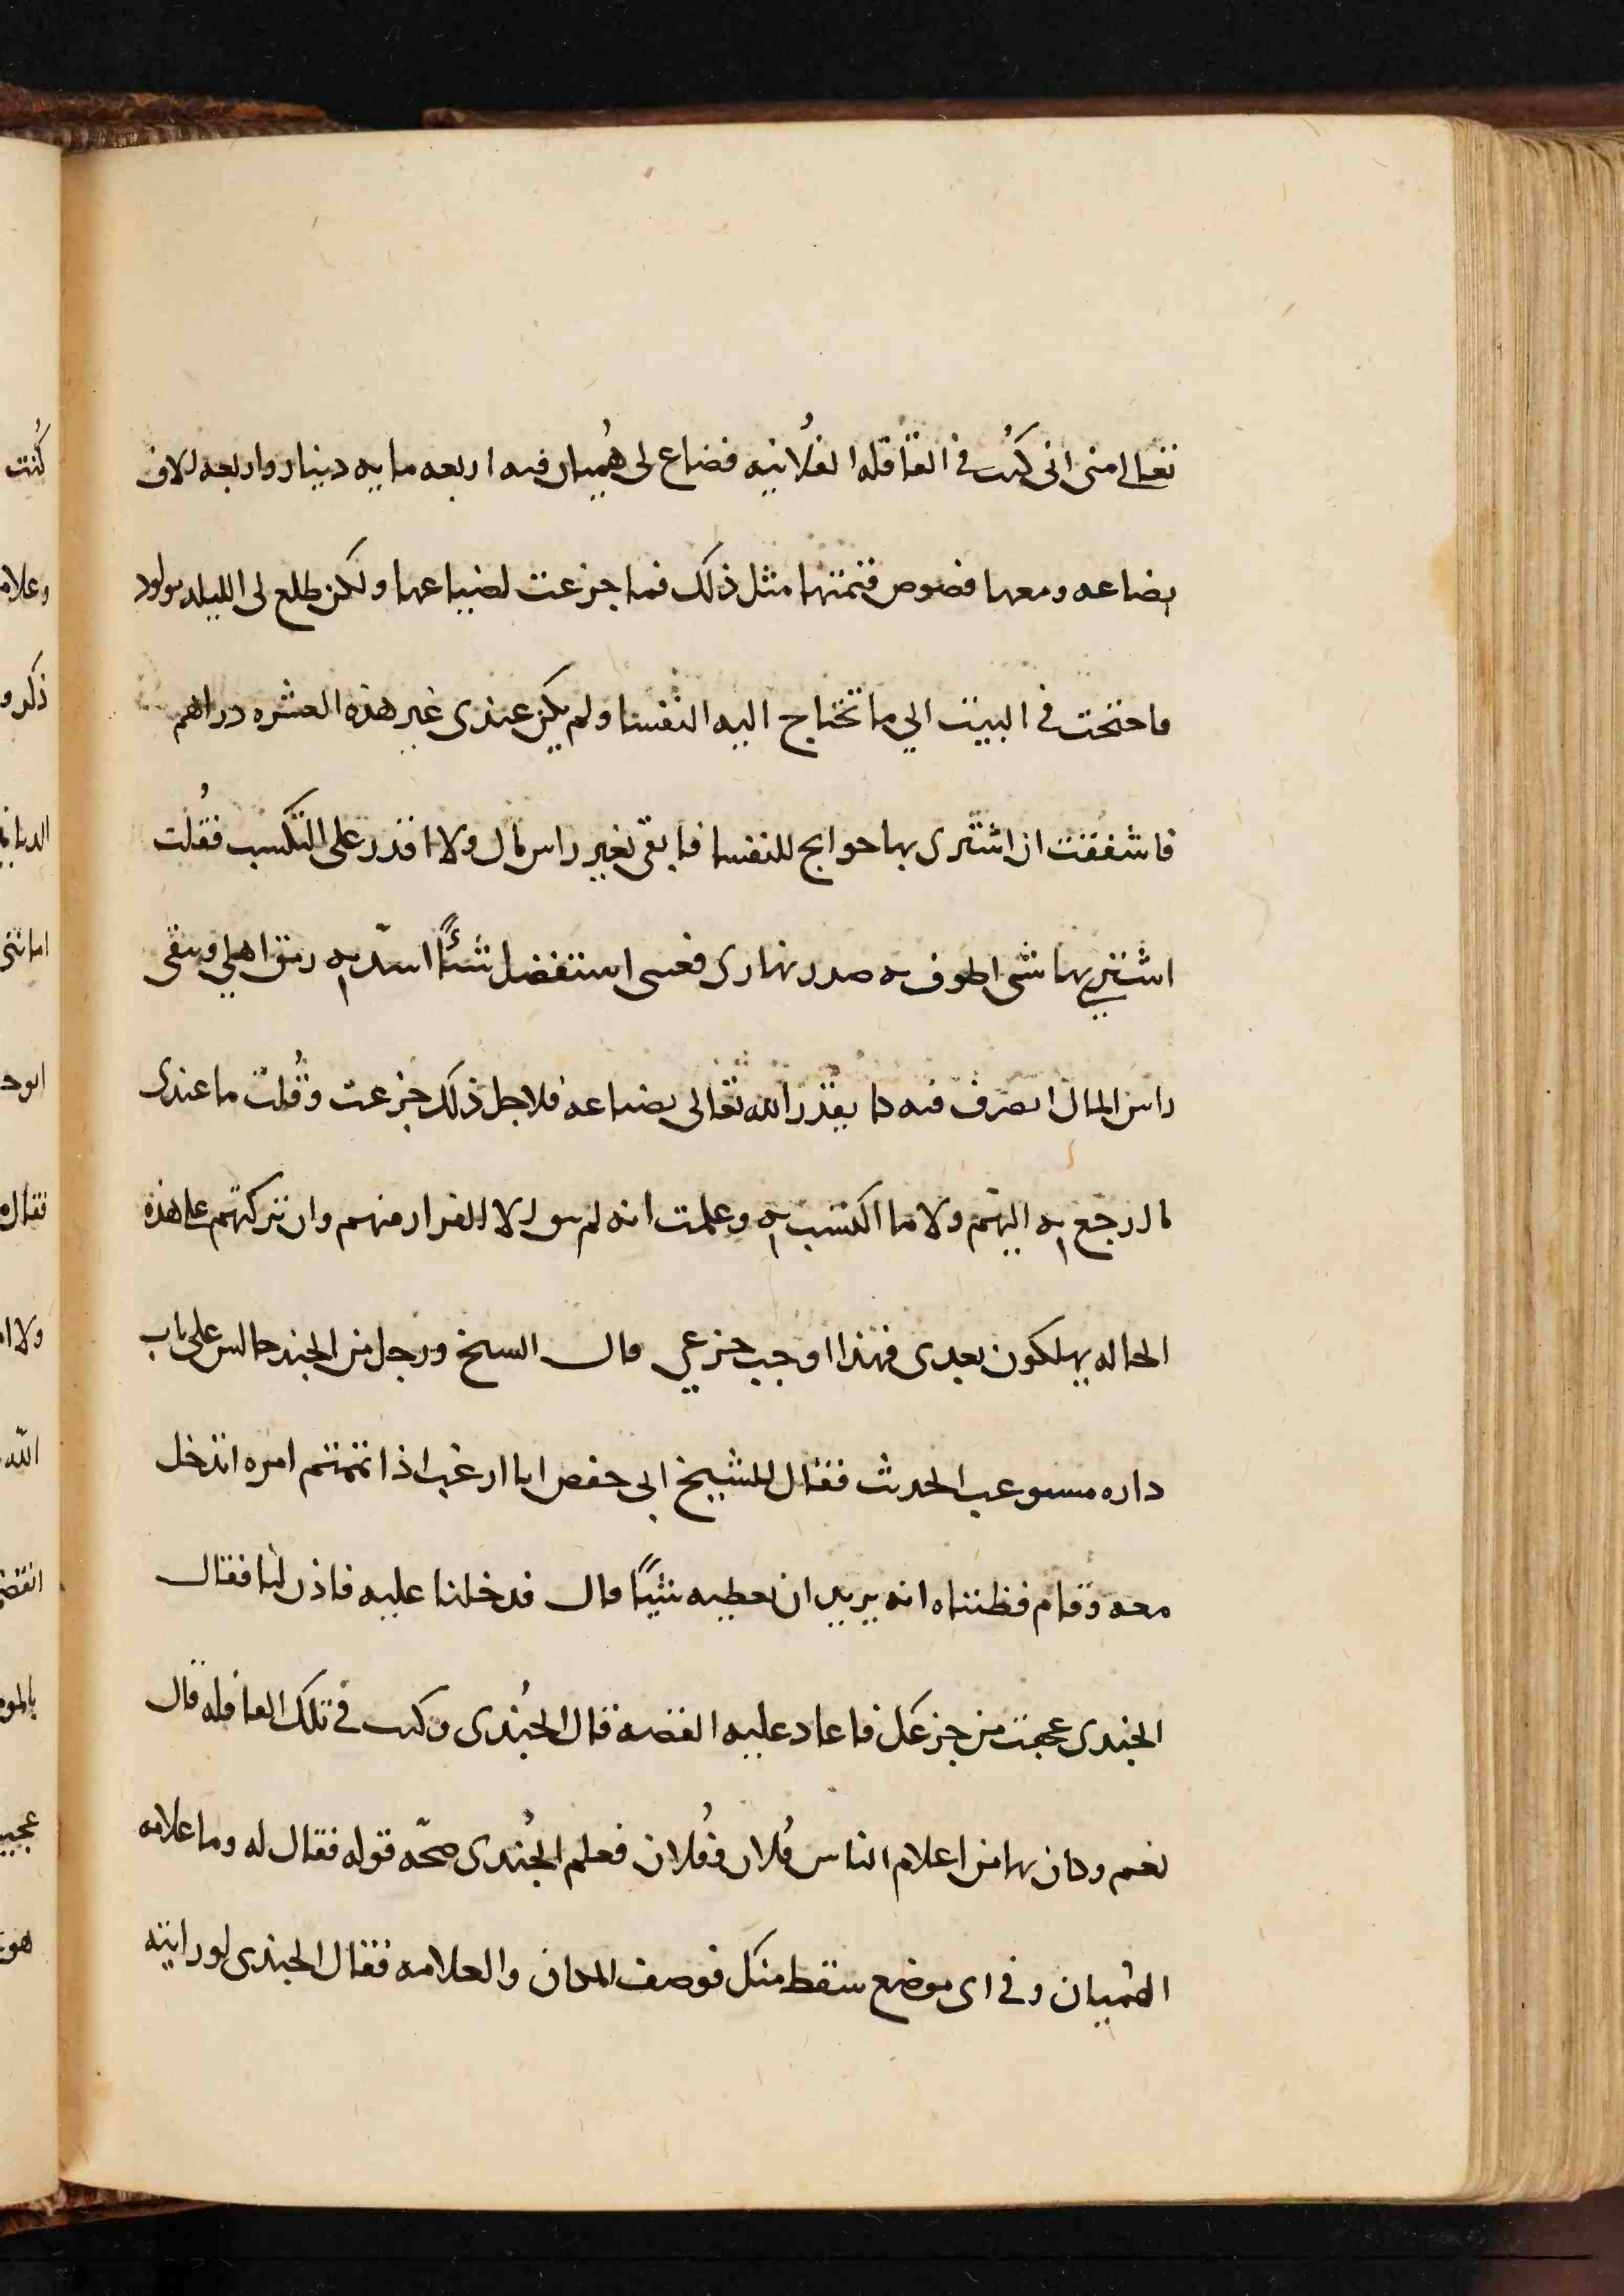 تعالى امنى انى كنت فى القافله الفلانيه فضاع لى هميان فيه اربعه مايه دينار واربعه الاف
بضاعه ومعها فصوص قيمتها مثل ذلك فما جزعت لضياعها ولكن طلع لى الليله مولود
فاحتجت فى البيت الي ما تحتاج اليه النفسا ولم يكن عندى غير هذه العشره دراهم
فاشفقت ان اشترى بها حوايج للنفسا فابقى بغير راس مال ولا اقدر على التكسب فقُلت
اشتري بها شى اطوف به صدر نهارى فعسى استفضل شئًا اسدّ به رمق اهلي ويبقى
راس المال اتصرف فيه فلاجل ذلك جزعت وقُلت ما عندى
ما ارجع به اليهم ولا ما اكتسب به وعلمت انه لم يبق لى الا الفرار منهم وان تركتهم على هذه
الحاله يهلكون بعدى فهذا اوجب جزعي قال الشيخ ورجل من الجند جالس على باب
داره الحديث فقال للشيخ ابى حفص انا ارغب اذا تممتم امره ان تدخل
معه وقام فظنناه انه يريد ان يعطيه شيًا قال فدخلنا عليه فاذن لنا فقال
الجندى عجبت من جزعك فاعاد عليه القصه قال الجُندى وكنت فى تلك القافله قال
نعم وكان بها من اعلام الناس فُلان وفُلان فعلم الجُندى صحّه قوله فقال له وما علامه
الهميان وفى اى موضع سقط منك فوصف المكان والعلامه فقال الجندى لو رايته
كُنت
وعلامه
الله
هو